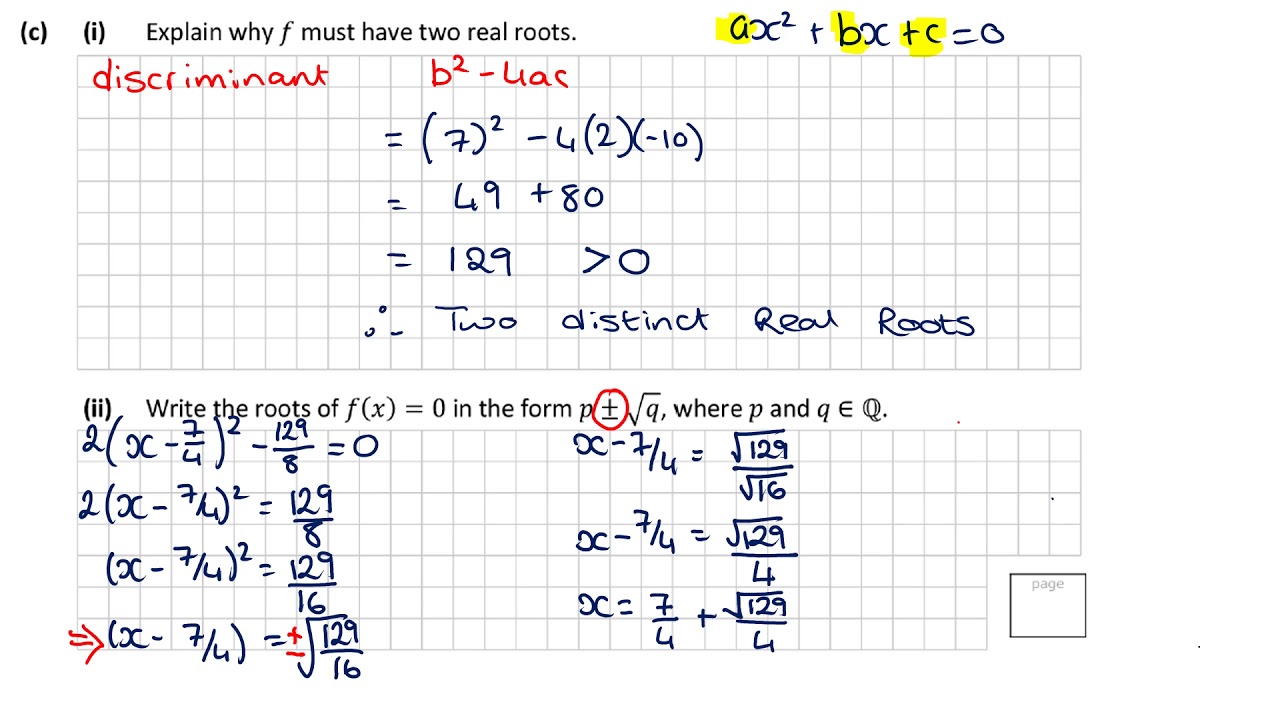 (c) (i) Explain why f must have two real roots. ax² + bx + c = 0
discriminant b² - 4ac
= (7)² - 4(2)(-10)
= 49 + 80
= 129 > 0
∴ Two distinct Real Roots
(ii) Write the roots of f(x) = 0 in the form p ± √q, where p and q ∈ ℚ.
2(x - 7/4)² - 129/8 = 0
2(x - 7/4)² = 129/8
(x - 7/4)² = 129/16
⇒ (x - 7/4) = ±√(129/16)
x - 7/4 = √129/√16
x - 7/4 = √129/4
x = 7/4 + √129/4
page